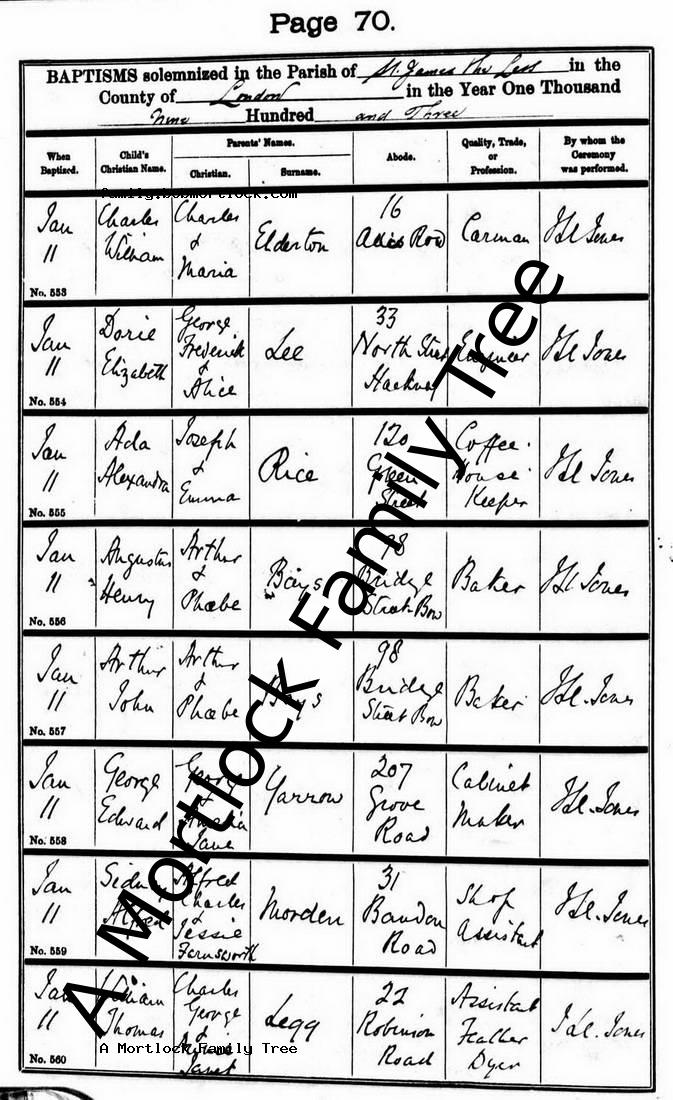 Page 70.
BAPTISMS solemnized in the Parish of St. James the Less in the
County of London in the Year One Thousand
Nine Hundred and Three
When Baptized.
Child's Christian Name.
Parents' Names.
Christian.
Surname.
Abode.
Quality, Trade, or Profession.
By whom the Ceremony was performed.
family.bobmortlock.com
Jan 11
Charles William
Charles & Maria
Elderton
16 Row
Carman
Jones
No. 553
Jan 11
Dorie Elizabeth
George Frederick & Alice
Lee
33 North Street Hackney
Engineer
Jones
No. 554
Jan 11
Ada Alexandra
Joseph & Emma
Rice
120 Green Street
Coffee House Keeper
Jones
No. 555
Jan 11
Augustus Henry
Arthur & Phœbe
Bays
98 Bridge Street Bow
Baker
Jones
No. 556
Jan 11
Arthur John
Arthur & Phœbe
Bays
98 Bridge Street Bow
Baker
Jones
No. 557
Jan 11
George Edward
George & Jane
Yarrow
207 Grove Road
Cabinet Maker
Jones
No. 558
Jan 11
Sidney Alfred
Alfred Charles & Jessie Farnsworth
Morden
31 Bandon Road
Shop Assistant
Jones
No. 559
Jan 11
William Thomas
Charles George & Janet
Legg
22 Robinson Road
Assistant Feather Dyer
Jones
No. 560
A Mortlock Family Tree
A Mortlock Family Tree